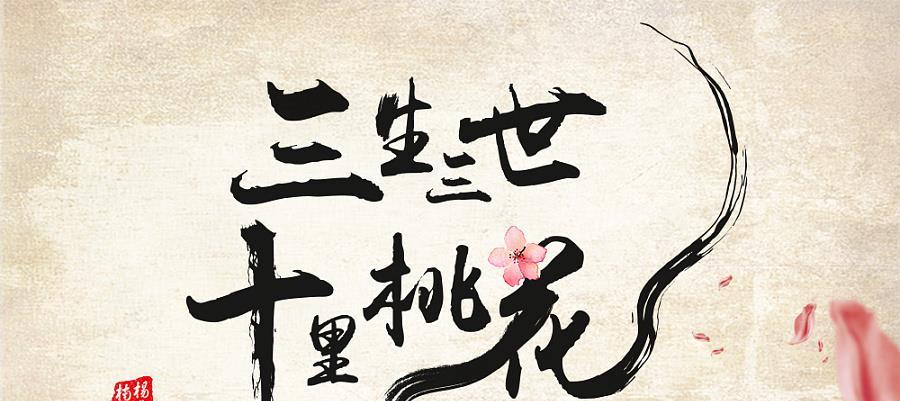 三生三世
十里桃花
杨楠